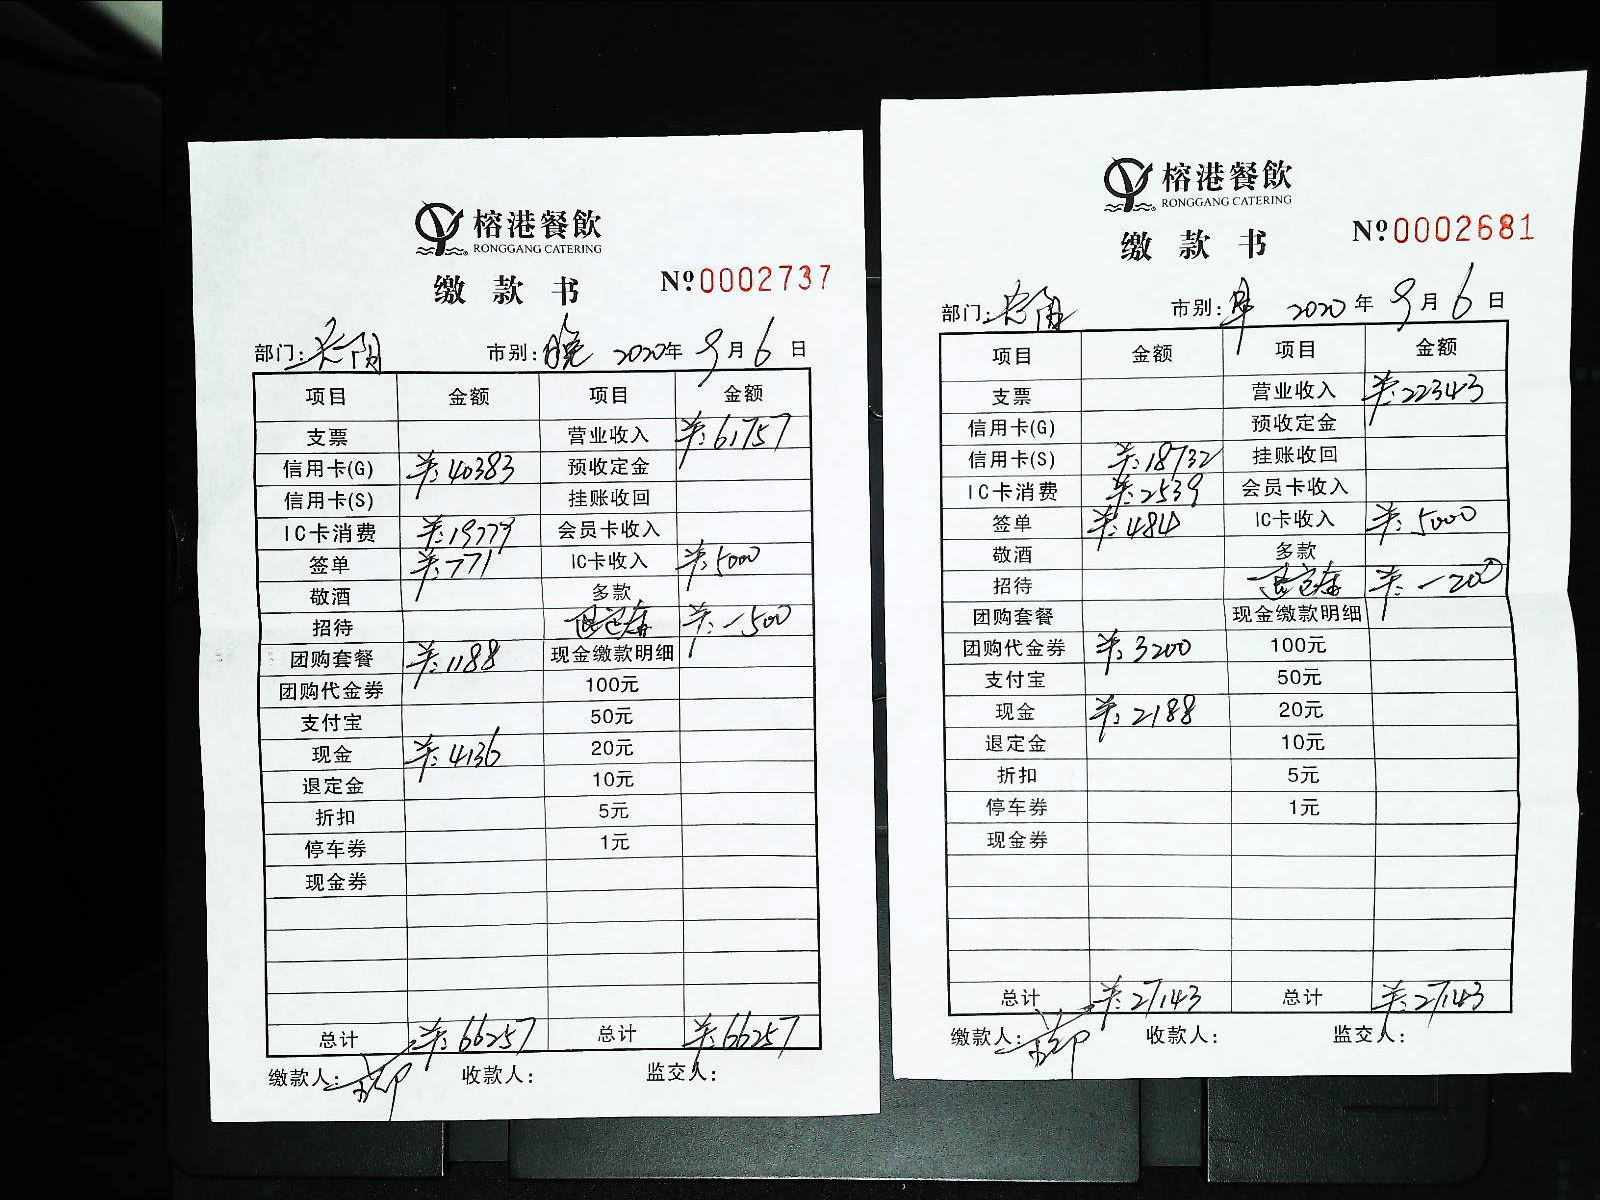 榕港餐飲
RONGGANG CATERING
缴款书
№0002737
部门: 市别:晚 2020年9月6日
项目 金额 项目 金额
支票 营业收入 ¥:61757
信用卡(G) ¥:40383 预收定金
信用卡(S) 挂账收回
IC卡消费 ¥:19779 会员卡收入
签单 ¥:771 IC卡收入 ¥:5000
敬酒 多款
招待 ¥:-500
团购套餐 ¥:1188 现金缴款明细
团购代金券 100元
支付宝 50元
现金 ¥:4136 20元
退定金 10元
折扣 5元
停车券 1元
现金券
总计 ¥:66257 总计 ¥:66257
缴款人: 收款人: 监交人:
榕港餐飲
RONGGANG CATERING
缴款书
№0002681
部门: 市别:午 2020年9月6日
项目 金额 项目 金额
支票 营业收入 ¥:22343
信用卡(G) 预收定金
信用卡(S) ¥:18732 挂账收回
IC卡消费 ¥:2539 会员卡收入
签单 ¥:484 IC卡收入 ¥:5000
敬酒 多款
招待 ¥:-200
团购套餐 现金缴款明细
团购代金券 ¥:3200 100元
支付宝 50元
现金 ¥:2188 20元
退定金 10元
折扣 5元
停车券 1元
现金券
总计 ¥:27143 总计 ¥:27143
缴款人: 收款人: 监交人: